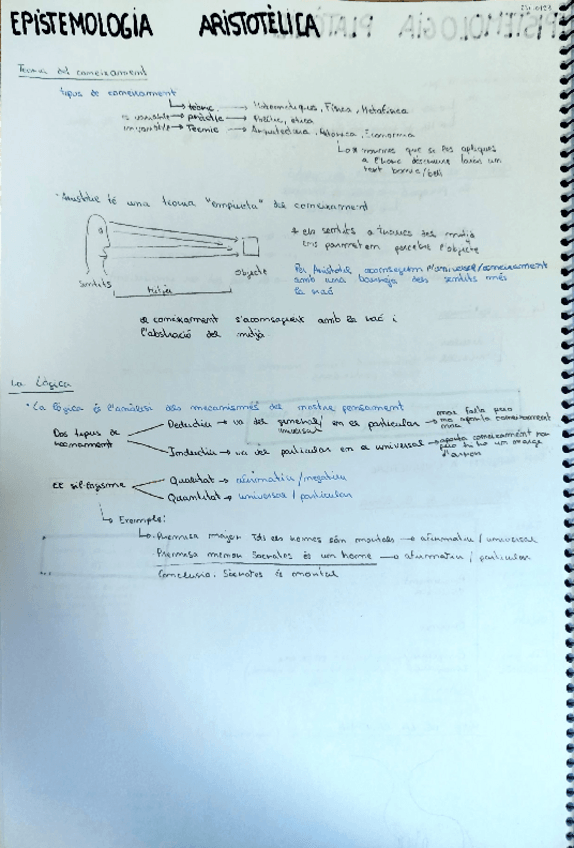 EPISTEMOLOGIA ARISTOTÈLICA
Teoria del coneixament
tipus de coneixament
teòric → Matemàtiques, Física, Metafísica
és variable → pràctic → Política, ètica
invariable → Tècnic → Arquitectura, Retòrica, Economia
normes que si les apliques
a l'hora d'escriure faràs un
text bonic/bell
· Aristòtil té una teoria "empirista" del coneixament
* els sentits a través del mitjà
ens permeten percebre l'objecte
Sentits
objecte
Mitjà
Per Aristòtil aconseguim l'universal/coneixament
amb una barreja dels sentits més
la raó
el coneixament s'aconsegueix amb la raó i
l'abstració del mitjà
La Lògica
· La lògica és l'anàlisi dels mecanismes del nostre pensament
Dos tipus de
raonament
Deductiu → va del general/ en el particular → mai falla però
universal
no aporta coneixement
nou
Inductiu → va del particular en a universal → aporta coneixement nou
però hi ha un marge
d'error
El sil·logisme
Qualitat → afirmatiu/negatiu
Quantitat → universal/particular
Exemple:
Premissa major Tots els homes són mortals → afirmatiu/universal
Premissa menor Sòcrates és un home → afirmatiu/particular
Conclusió. Sòcrates és mortal